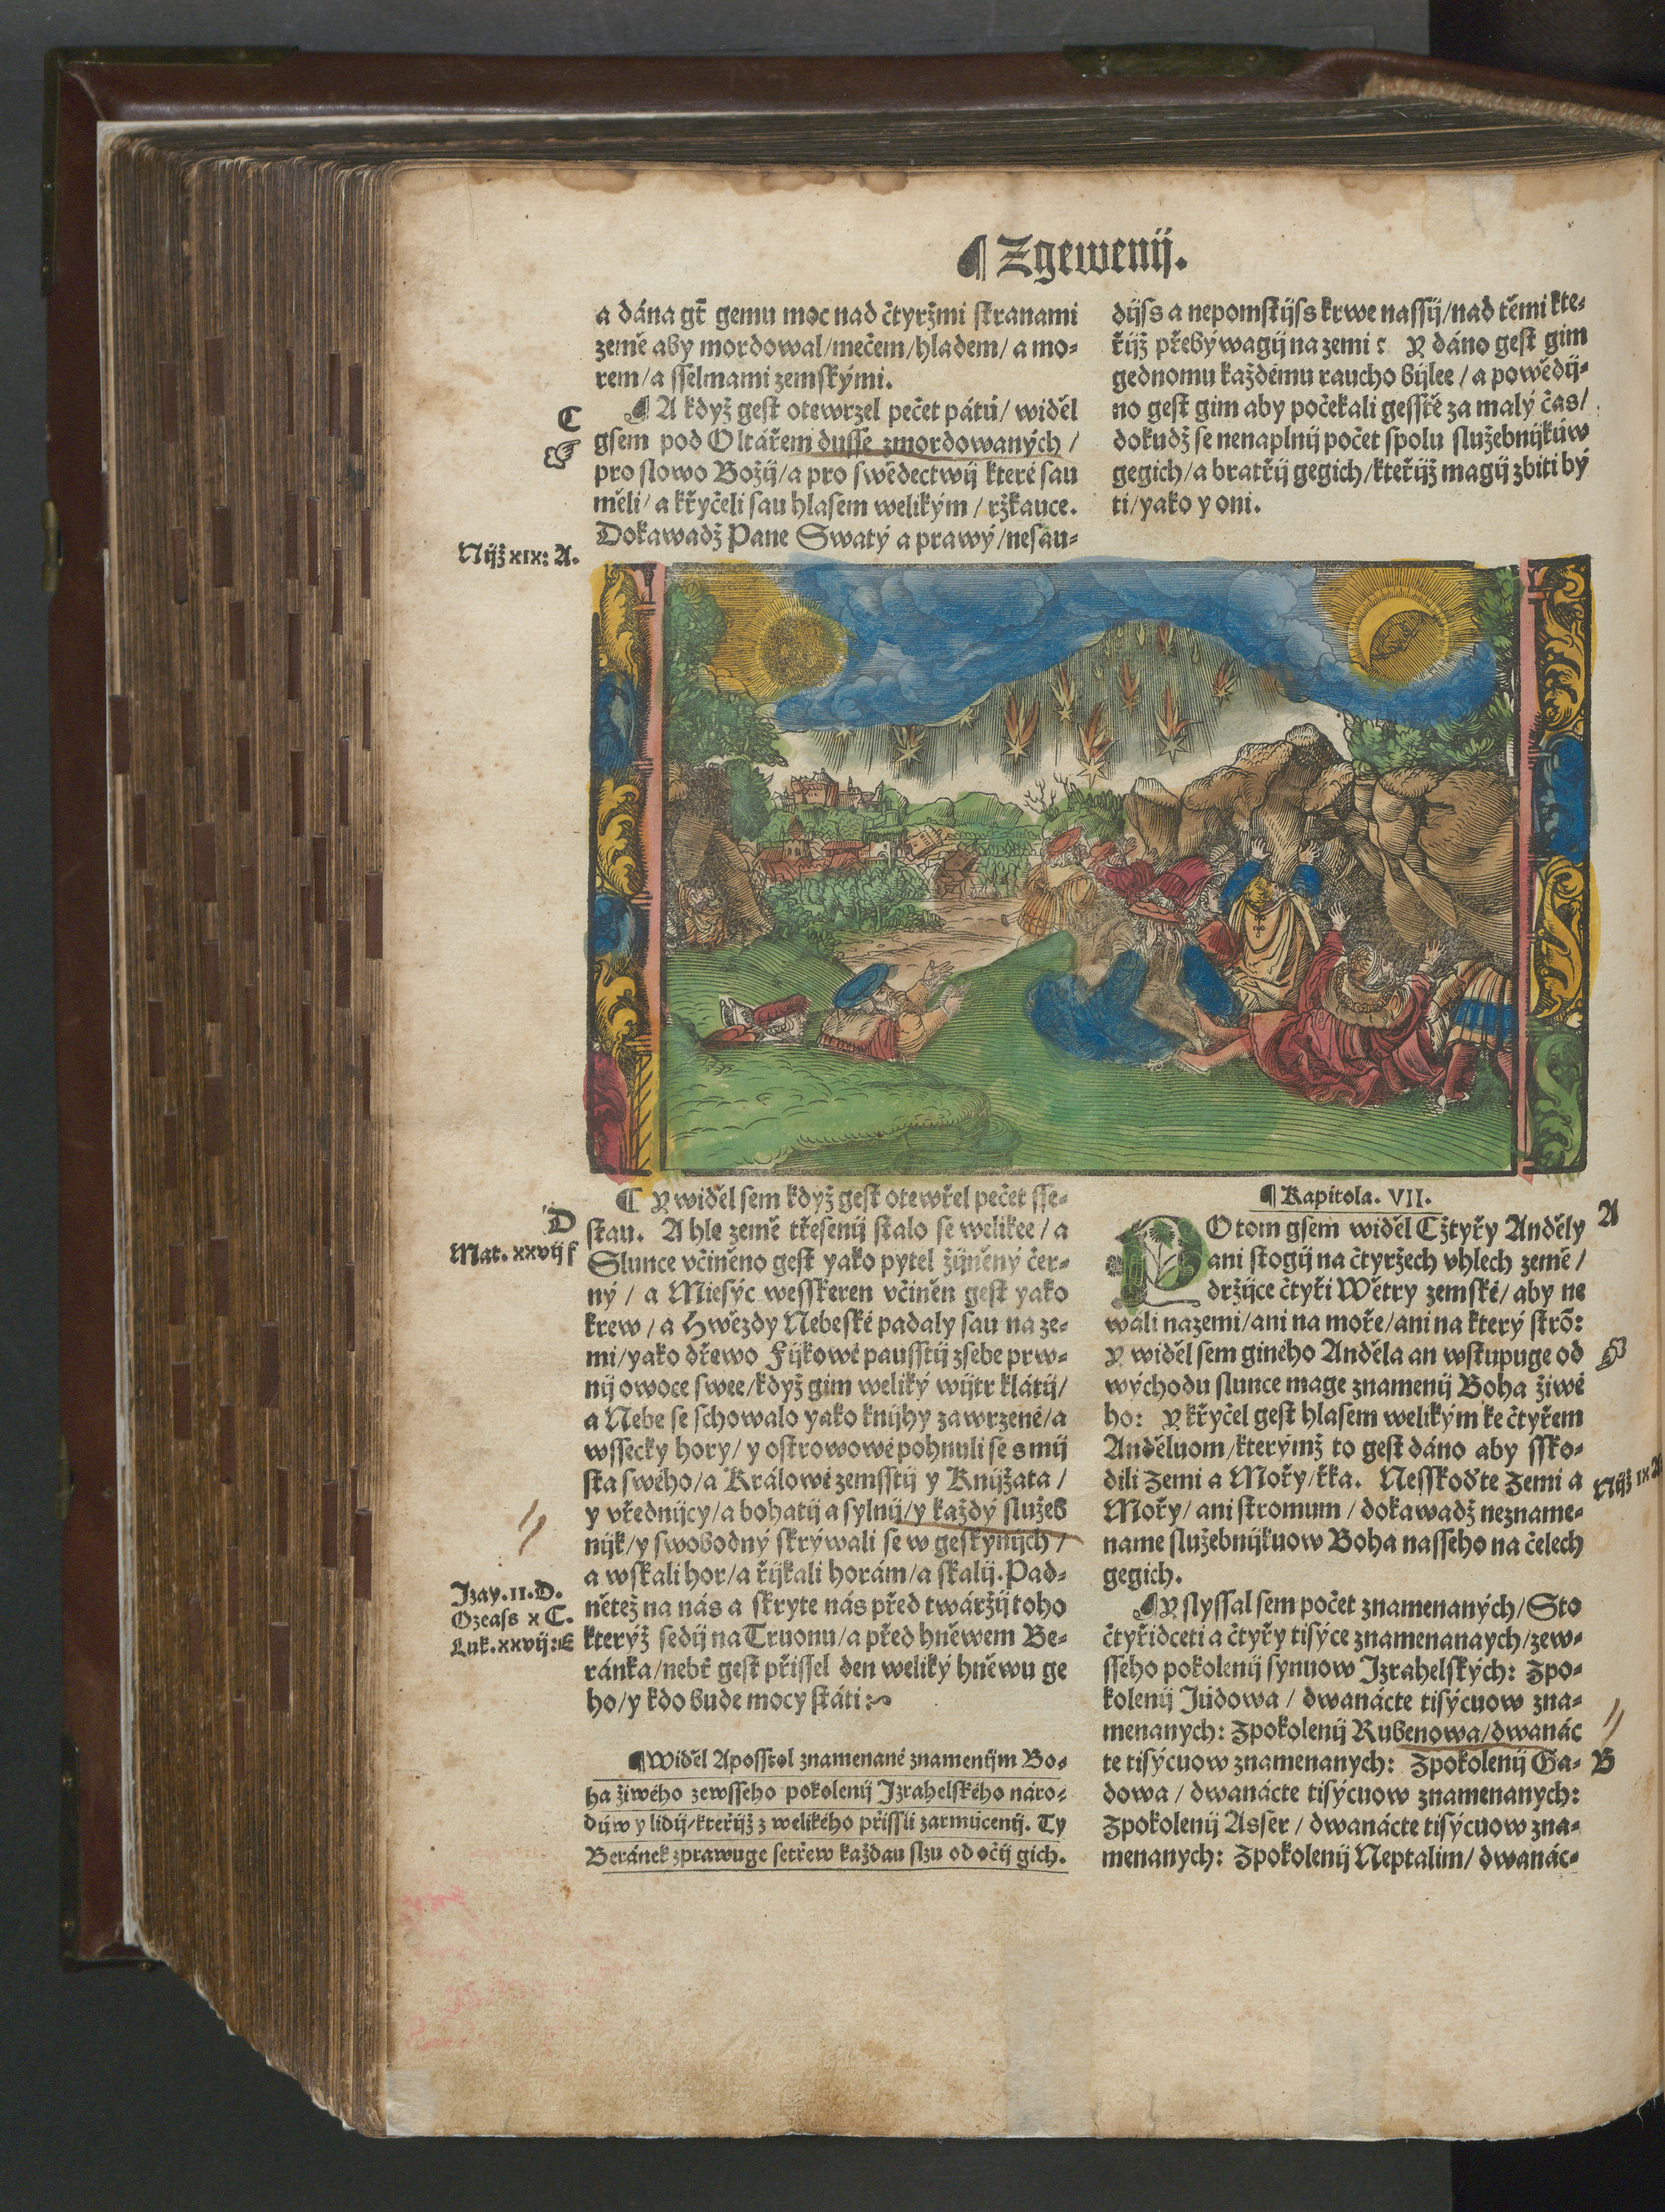 ¶ Zgewenij.
a dána gt̃ gemu moc nad čtyržmi stranami
země aby mordowal/mečem/hladem/ a mo-
rem/a sselmami zemskými.
C
¶ A když gest otewrzel pečet pátú/ widěl
gsem pod Oltářem dusse zmordowaných /
pro slowo Božij/a pro swědectwij které sau
měli/ a křyčeli sau hlasem welikým / ržkauce.
Dokawadž Pane Swatý a prawý/nesau-
Nijž xix: A.
dijs a nepomstijs krwe nassij/nad těmi kte-
řijž přebýwagij na zemi: Y dáno gest gim
gednomu každému raucho bijlee / a powědij-
no gest gim aby počekali gesstě za malý čas/
dokudž se nenaplnij počet spolu služebnijkúw
gegich/a bratřij gegich/kteřijž magij zbiti bý
ti/yako y oni.
¶ Y widěl sem když gest otewřel pečet sse-
D
stau. A hle země třesenij stalo se welikee/ a
Mat. xxvij f
Slunce včiněno gest yako pytel žijněný čer-
ný / a Miesýc wesskeren včiněn gest yako
krew / a Hwězdy Nebeské padaly sau na ze-
mi/yako dřewo Fijkowé pausstij zsebe prw-
nij owoce swee/když gim weliký wijtr klátij/
a Nebe se schowalo yako knijhy zawrzené/a
wssecky hory/ y ostrowowé pohnuli se s mij
sta swého/a Králowé zemsstij y Knijžata /
y vřednijcy/a bohatij a sylnij/y každý služeb
nijk/y swobodný skrýwali se w geskynijch /
a wskali hor/a řijkali horám/a skalij. Pad-
Izay. II. D.
Ozeass x C.
Luk. xxvij: E
nětež na nás a skryte nás před twáržij toho
kterýž sedij na Truonu/a před hněwem Be-
ránka/nebť gest přissel den weliký hněwu ge
ho/y kdo bude mocy státi:
¶ Widěl Aposstol znamenané znamenijm Bo-
ha žiwého zewsseho pokolenij Izrahelského náro-
dúw y lidij/kteřijž z welikého přissli zarmúcenij. Ty
Beránek zprawuge setřew každau slzu od očij gich.
¶ Kapitola. VII.
A
POtom gsem widěl Cžtyřy Anděly
ani stogij na čtyržech vhlech země /
držijce čtyři Wětry zemské/ aby ne
wáli nazemi/ani na moře/ani na který strõ:
Y widěl sem giného Anděla an wstupuge od
východu slunce mage znamenij Boha žiwé
ho: Y křyčel gest hlasem welikým ke čtyřem
Anděluom/kterýmž to gest dáno aby ssko-
dili Zemi a Mořy/řka. Nesskoďte Zemi a
Nijž ix A
Mořy/ ani stromum / dokawadž nezname-
name služebnijkuow Boha nasseho na čelech
gegich.
¶ Y slyssal sem počet znamenaných/ Sto
čtyřidceti a čtyřy tisýce znamenanaych/zew-
sseho pokolenij synuow Izrahelských: Zpo-
kolenij Júdowa / dwanácte tisýcuow zna-
menanych: Zpokolenij Rubenowa/dwanác
te tisýcuow znamenanych: Zpokolenij Ga-
B
dowa / dwanácte tisýcuow znamenanych:
Zpokolenij Asser / dwanácte tisýcuow zna-
menanych: Zpokolenij Neptalim/ dwanác-